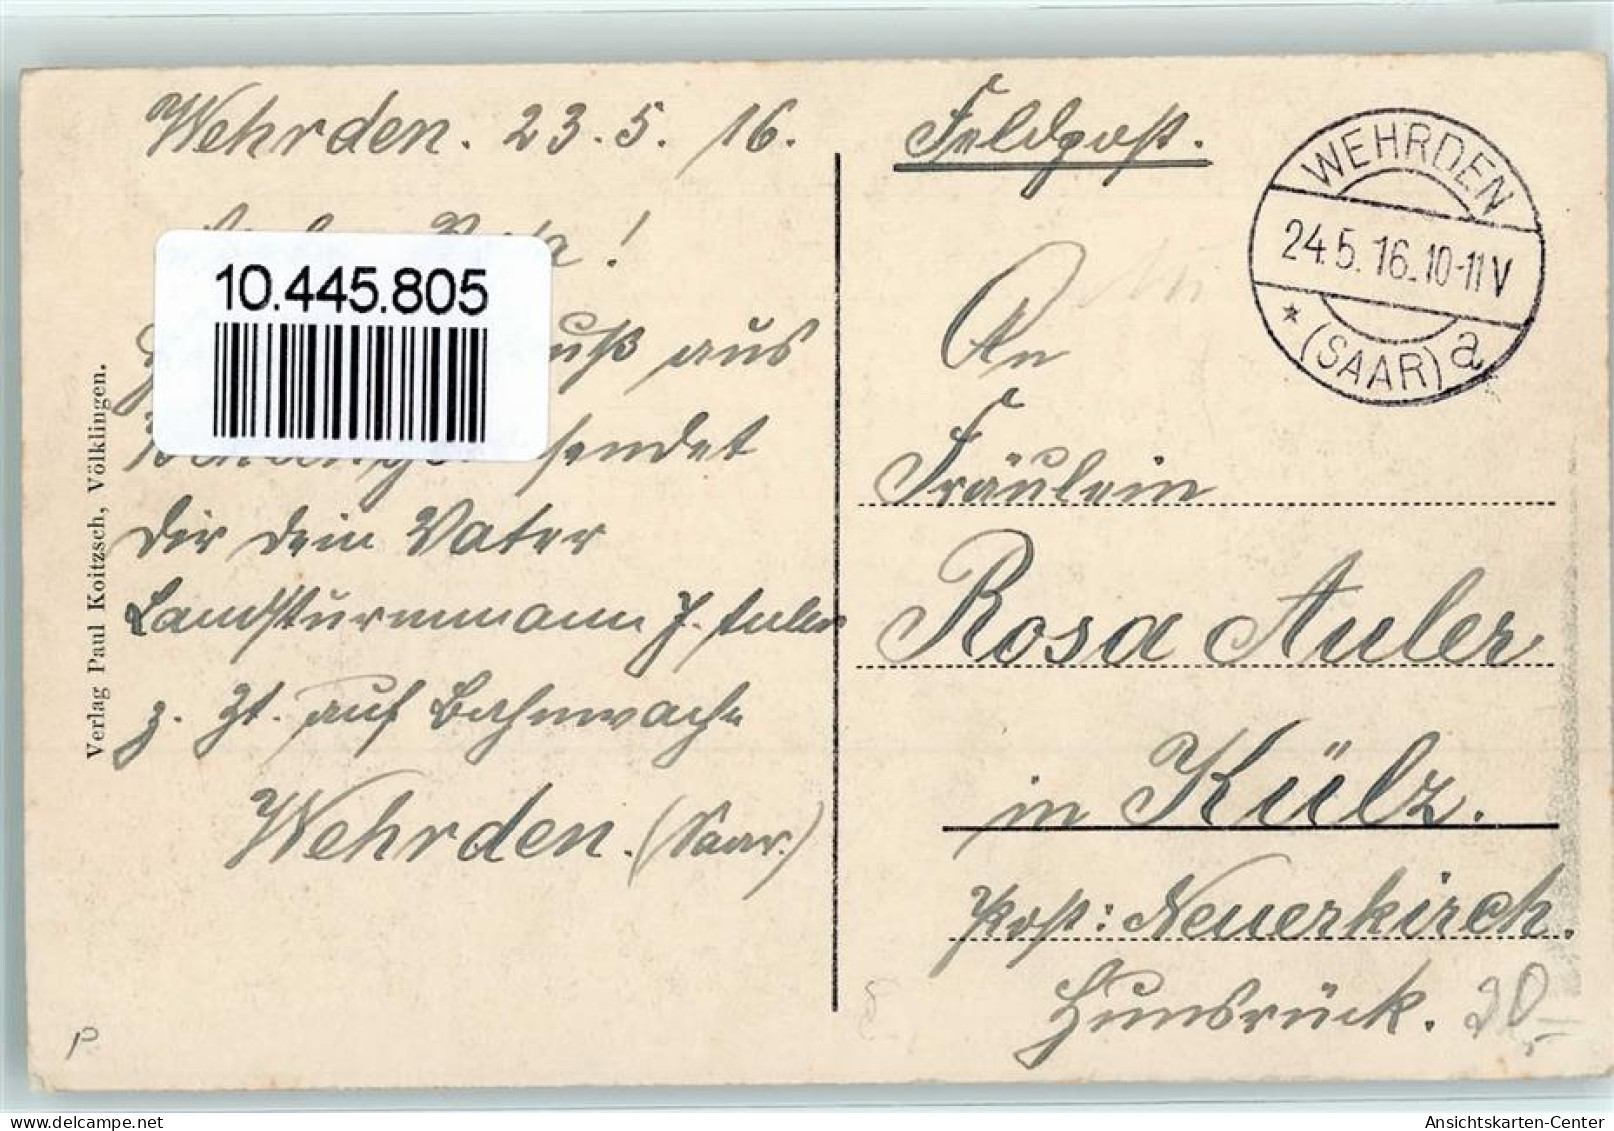 Wehrden. 23. 5. 16.
Rosa!
10.445.805
aus
sendet
Dir dein Vater
Landsturmmann J. Auler
z. Zt. auf Bahnwache
Wehrden. (Saar.)
Verlag Paul Koitzsch, Völklingen.
P
Feldpost.
WEHRDEN
24.5.16.10-11V
* (SAAR) a
An
Fräulein
Rosa Auler
in Külz.
Post: Neuerkirch.
Hunsrück.
20,-
Ansichtskarten-Center
www.delcampe.net